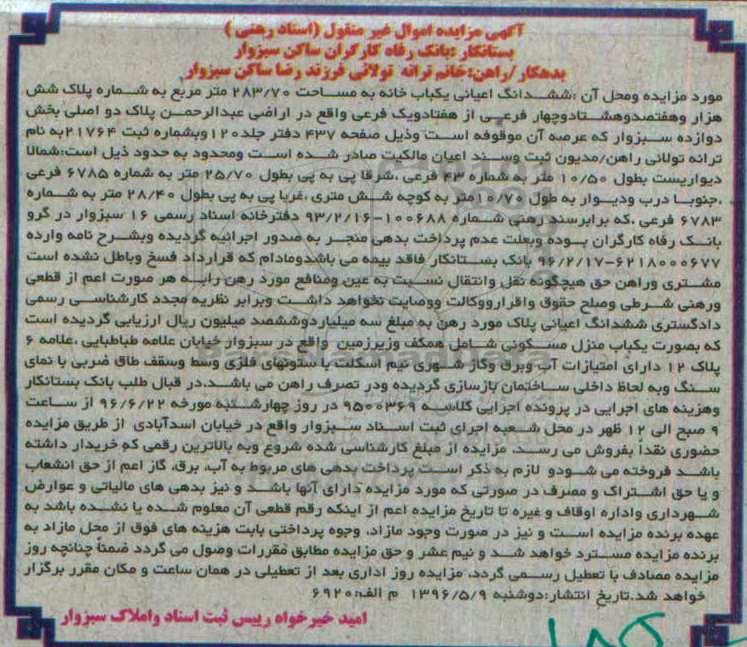 آگهی مزایده اموال غیر منقول (اسناد رهنی )
بستانکار :بانک رفاه کارگران ساکن سبزوار
بدهکار /راهن:خانم ترانه تولائی فرزند رضا ساکن سبزوار
مورد مزایده ومحل آن :ششدانگ اعیانی یکباب خانه به مساحت ۲۸۳/۷۰ متر مربع به شماره پلاک شش
هزار وهفتصدوهشتادوچهار فرعی از هفتادویک فرعی واقع در اراضی عبدالرحمن پلاک دو اصلی بخش
دوازده سبزوار که عرصه آن موقوفه است وذیل صفحه ۴۳۷ دفتر جلد۱۲۰ وبشماره ثبت ۲۱۷۶۴به نام
ترانه تولائی راهن/مدیون ثبت وسند اعیان مالکیت صادر شده است ومحدود به حدود ذیل است:شمالا
دیواریست بطول ۱۰/۵۰ متر به شماره ۴۳ فرعی ،شرقا پی به پی بطول ۲۵/۷۰ متر به شماره ۶۷۸۵ فرعی
،جنوبا درب ودیوار به طول ۱۰/۷۰متر به کوچه شش متری ،غربا پی به پی بطول ۲۸/۴۰ متر به شماره
۶۷۸۳ فرعی ،که برابرسند رهنی شماره ۱۰۰۶۸۸-۹۳/۲/۱۶ دفترخانه اسناد رسمی ۱۶ سبزوار در گرو
بانک رفاه کارگران بوده وبعلت عدم پرداخت بدهی منجر به صدور اجرائیه گردیده وبشرح نامه وارده
۶۲۱۸۰۰۰۶۷۷-۹۶/۲/۱۷ بانک بستانکار فاقد بیمه می باشدومادام که قرارداد فسخ وباطل نشده است
مشتری وراهن حق هیچگونه نقل وانتقال نسبت به عین ومنافع مورد رهن رابه هر صورت اعم از قطعی
ورهنی شرطی وصلح حقوق واقرارووکالت ووصایت نخواهد داشت وبرابر نظریه مجدد کارشناسی رسمی
دادگستری ششدانگ اعیانی پلاک مورد رهن به مبلغ سه میلیاردوششصد میلیون ریال ارزیابی گردیده است
که بصورت یکباب منزل مسکونی شامل همکف وزیرزمین واقع در سبزوار خیابان علامه طباطبایی ،علامه ۶
پلاک ۱۲ دارای امتیازات آب وبرق وگاز شهری نیم اسکلت با ستونهای فلزی وسط وسقف طاق ضربی با نمای
سنگ وبه لحاظ داخلی ساختمان بازسازی گردیده ودر تصرف راهن می باشد.در قبال طلب بانک بستانکار
وهزینه های اجرایی در پرونده اجرایی کلاسه ۹۵۰۰۳۶۹ در روز چهارشنبه مورخه ۹۶/۶/۲۲ از ساعت
۹ صبح الی ۱۲ ظهر در محل شعبه اجرای ثبت اسناد سبزوار واقع در خیابان اسدآبادی از طریق مزایده
حضوری نقداً بفروش می رسد. مزایده از مبلغ کارشناسی شده شروع وبه بالاترین رقمی که خریدار داشته
باشد فروخته می شودو لازم به ذکر است پرداخت بدهی های مربوط به آب، برق، گاز اعم از حق انشعاب
و یا حق اشتراک و مصرف در صورتی که مورد مزایده دارای آنها باشد و نیز بدهی های مالیاتی و عوارض
شهرداری واداره اوقاف وغیره تا تاریخ مزایده اعم از اینکه رقم قطعی آن معلوم شده یا نشده باشد به
عهده برنده مزایده است و نیز در صورت وجود مازاد، وجوه پرداختی بابت هزینه های فوق از محل مازاد به
برنده مزایده مسترد خواهد شد و نیم عشر و حق مزایده مطابق مقررات وصول می گردد ضمناً چنانچه روز
مزایده مصادف با تعطیل رسمی گردد، مزایده روز اداری بعد از تعطیلی در همان ساعت و مکان مقرر برگزار
خواهد شد.تاریخ انتشار:دوشنبه ۱۳۹۶/۵/۹ م الف:۶۹۲۰
امید خیرخواه رییس ثبت اسناد واملاک سبزوار